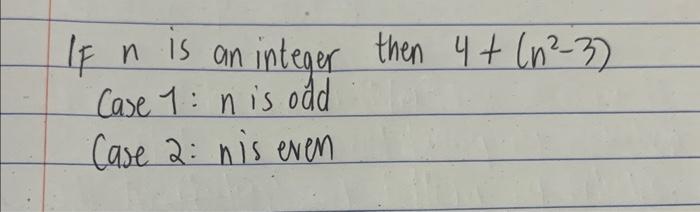 If n is an integer then 4 + (n²-3)
Case 1: n is odd
Case 2: n is even